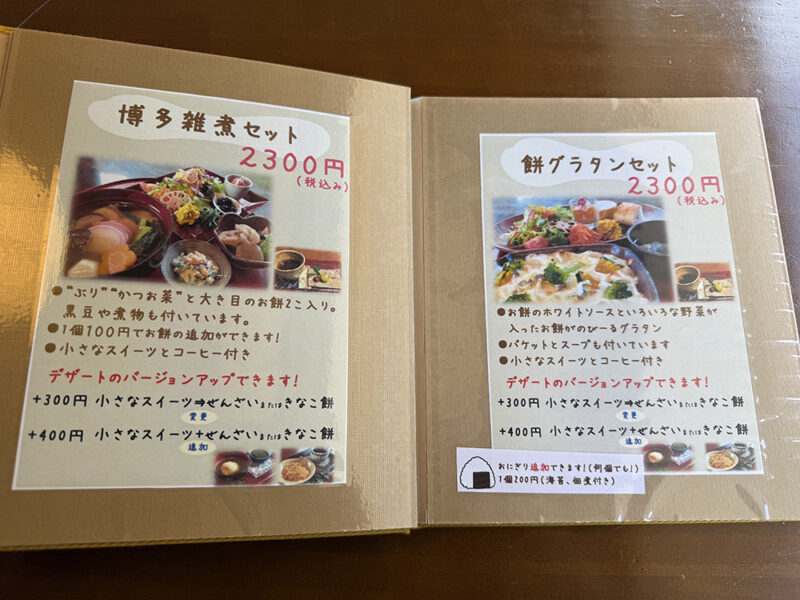 博多雑煮セット
2300円
(税込み)
●“ぶり”“かつお菜”と大き目のお餅2こ入り。
黒豆や煮物も付いています。
●1個100円でお餅の追加ができます!
●小さなスイーツとコーヒー付き
デザートのバージョンアップできます!
+300円 小さなスイーツ⇒ぜんざいまたはきなこ餅
変更
+400円 小さなスイーツ+ぜんざいまたはきなこ餅
追加
餅グラタンセット
2300円
(税込み)
●お餅のホワイトソースといろいろな野菜が
入ったお餅がのびーるグラタン
●バケットとスープも付いています
●小さなスイーツとコーヒー付き
デザートのバージョンアップできます!
+300円 小さなスイーツ⇒ぜんざいまたはきなこ餅
変更
+400円 小さなスイーツ+ぜんざいまたはきなこ餅
追加
おにぎり追加できます!(何個でも!)
1個200円(海苔、佃煮付き)